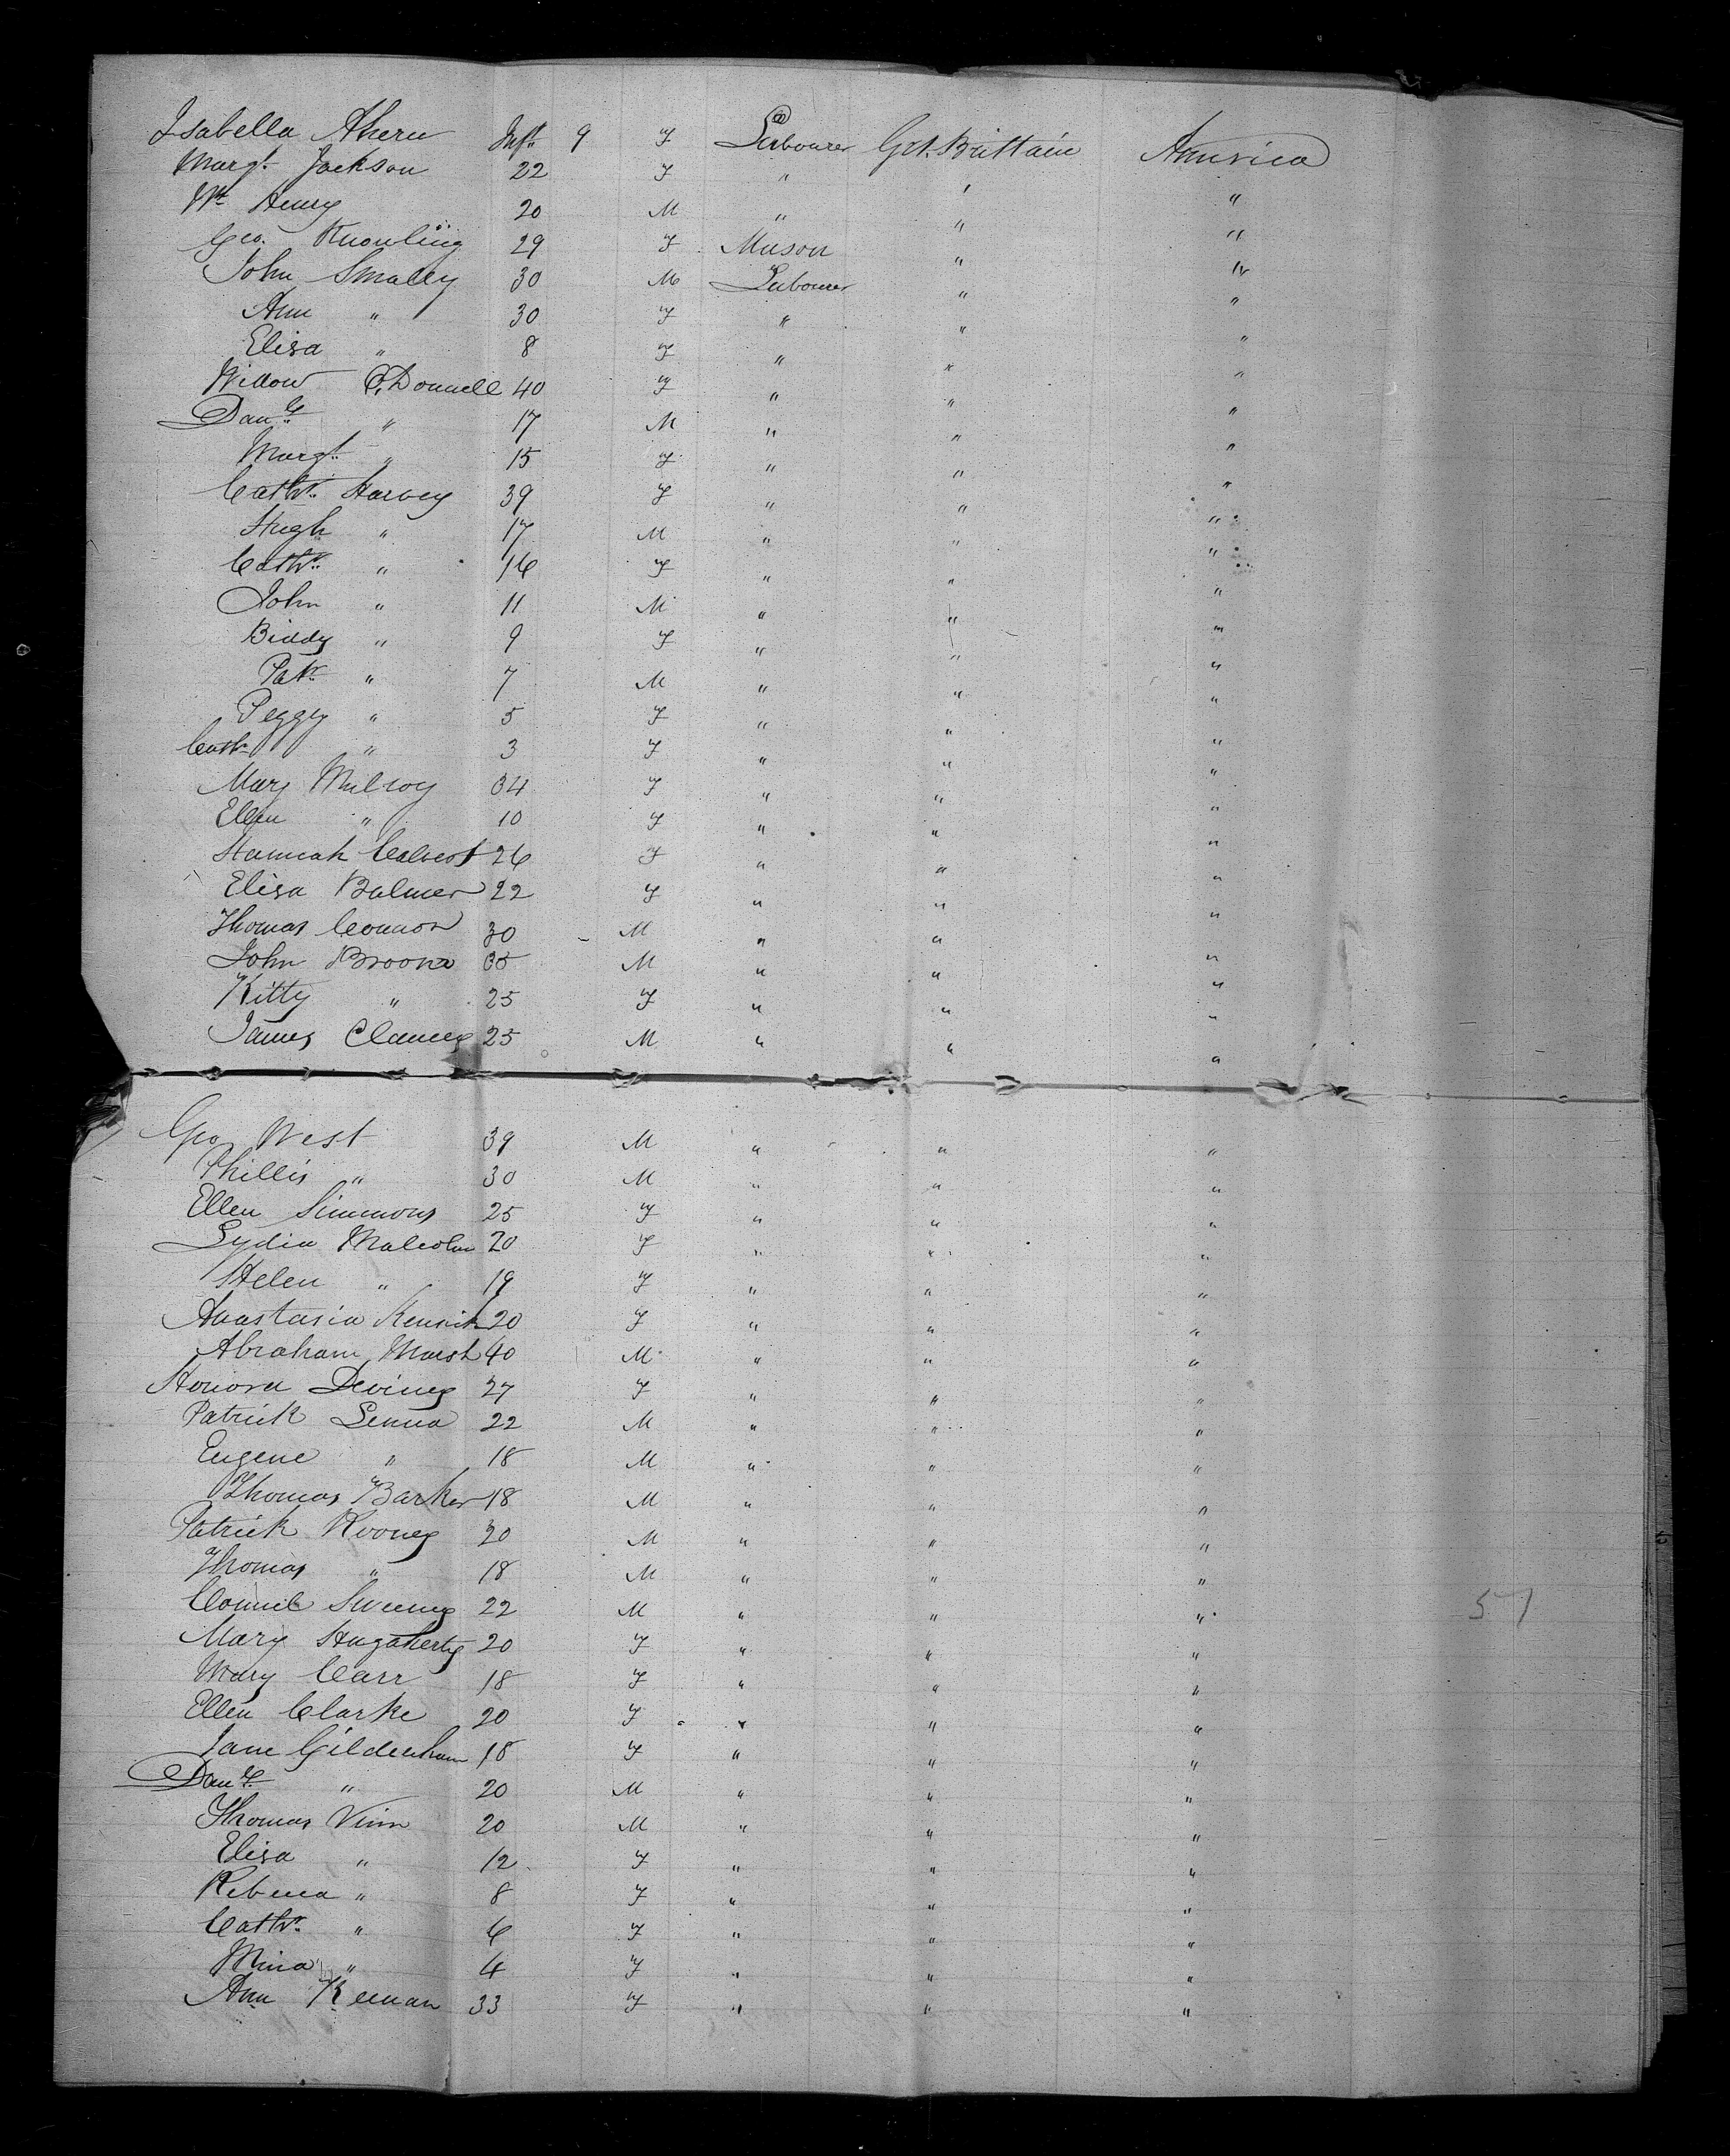 Isabella Ahern Inft 9 F Labourer Grt. Brittain America
Margt. Jackson 22 F " " "
Wm Henry 20 M " " "
Geo. Knowling 29 F Mason " "
John Smaley 30 M Labourer " "
Ann " 30 F " " "
Elisa " 8 F " " "
Widow O'Donnell 40 F " " "
Danl. " 17 M " " "
Margt. " 15 F " " "
Cathr. Harvey 39 F " " "
Hugh " 17 M " " "
Cathr. " 16 F " " "
John " 11 M " " "
Biddy " 9 F " " "
Patk. " 7 M " " "
Peggy " 5 F " " "
Cathr " 3 F " " "
Mary Milroy 34 F " " "
Ellen " 10 F " " "
Hannah Calvert 26 F " " "
Elisa Balmer 22 F " " "
Thomas Connor 30 M " " "
John Broom 35 M " " "
Kitty " 25 F " " "
James Clancey 25 M " " "
Geo West 39 M " " "
Phillis " 30 M " " "
Ellen Simmons 25 F " " "
Lydia Malcolm 20 F " " "
Helen " 19 F " " "
Anastasia 20 F " " "
Abraham Marsh 40 M " " "
Honora Deviney 27 F " " "
Patrick Lenna 22 M " " "
Eugene " 18 M " " "
Thomas Barker 18 M " " "
Patrick Rooney 20 M " " "
Thomas " 18 M " " "
Connel Sweeney 22 M " " "
Mary Hagaherty 20 F " " "
Mary Carr 18 F " " "
Ellen Clarke 20 F " " "
Jane Gildenham 18 F " " "
Danl. " 20 M " " "
Thomas Vinn 20 M " " "
Elisa " 12 F " " "
Rebecca " 8 F " " "
Cathr. " 6 F " " "
Mina " 4 F " " "
Ann Keenan 33 F " " "
57